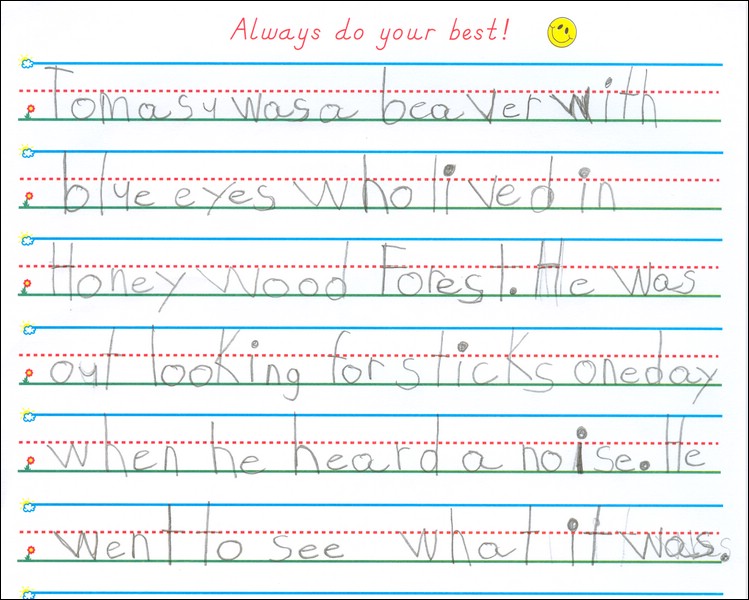 Always do your best!
Tomasy was a beaver with
blue eyes who lived in
Honey Wood Forest. He was
out looking for sticks one day
when he heard a noise. He
went to see what it was.